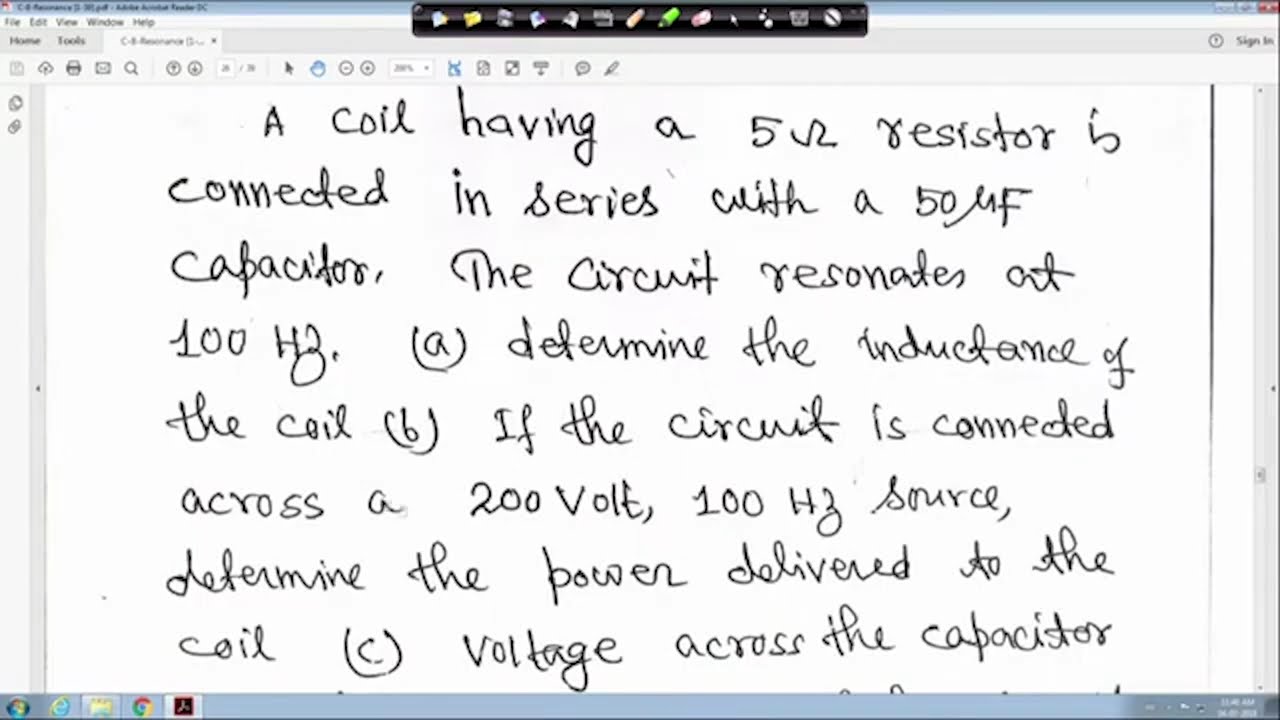 C-8-Resonance [1-38].pdf - Adobe Acrobat Reader DC
File Edit View Window Help
Home Tools C-8-Resonance [1-... × Sign In
200%
A coil having a 5Ω resistor is
connected in series with a 50 μF
capacitor. The circuit resonates at
100 Hz. (a) determine the inductance of
the coil (b) If the circuit is connected
across a 200 Volt, 100 Hz source,
determine the power delivered to the
coil (c) voltage across the capacitor
11:40 AM